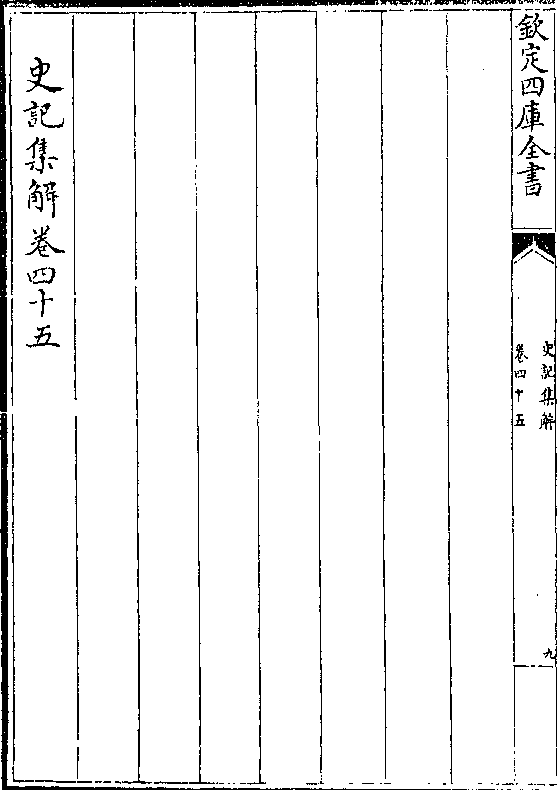 欽定四庫全書
史記集解
卷四十五
九
史記集解卷四十五